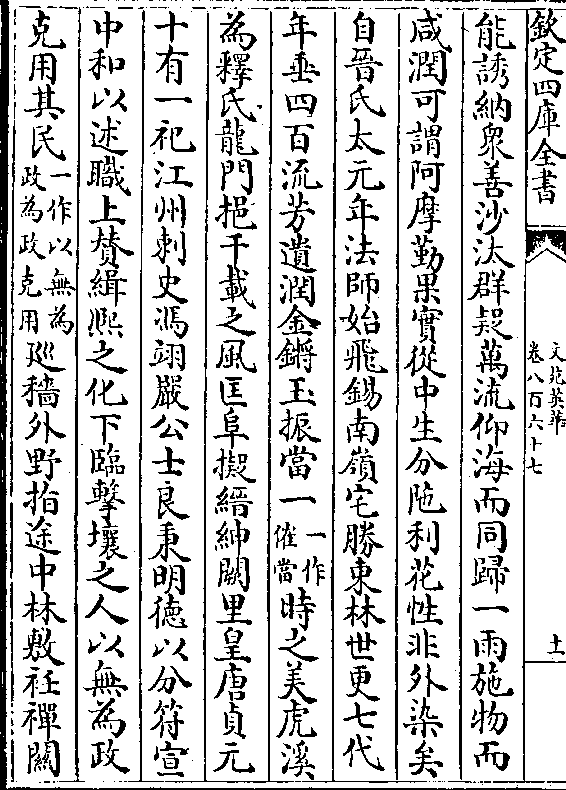 欽定四庫全書
文苑英華
卷八百六十七
十一
能誘納衆善沙汰群疑萬流仰海而同歸一雨施物而
咸潤可謂阿摩勤果實從中生分陁利花性非外染矣
自晉氏太元年法師始飛錫南嶺宅勝東林世更七代
年垂四百流芳遺潤金鏘玉振當一一作催當時之美虎溪
為釋氏龍門挹千載之風匡阜擬縉紳闕里皇唐貞元
十有一祀江州刺史馮翊嚴公士良秉明德以分符宣
中和以述職上賛緝熈之化下臨擊壤之人以無為政
克用其民一作以無為政為政克用廵穡外野指途中林敷衽禪闗